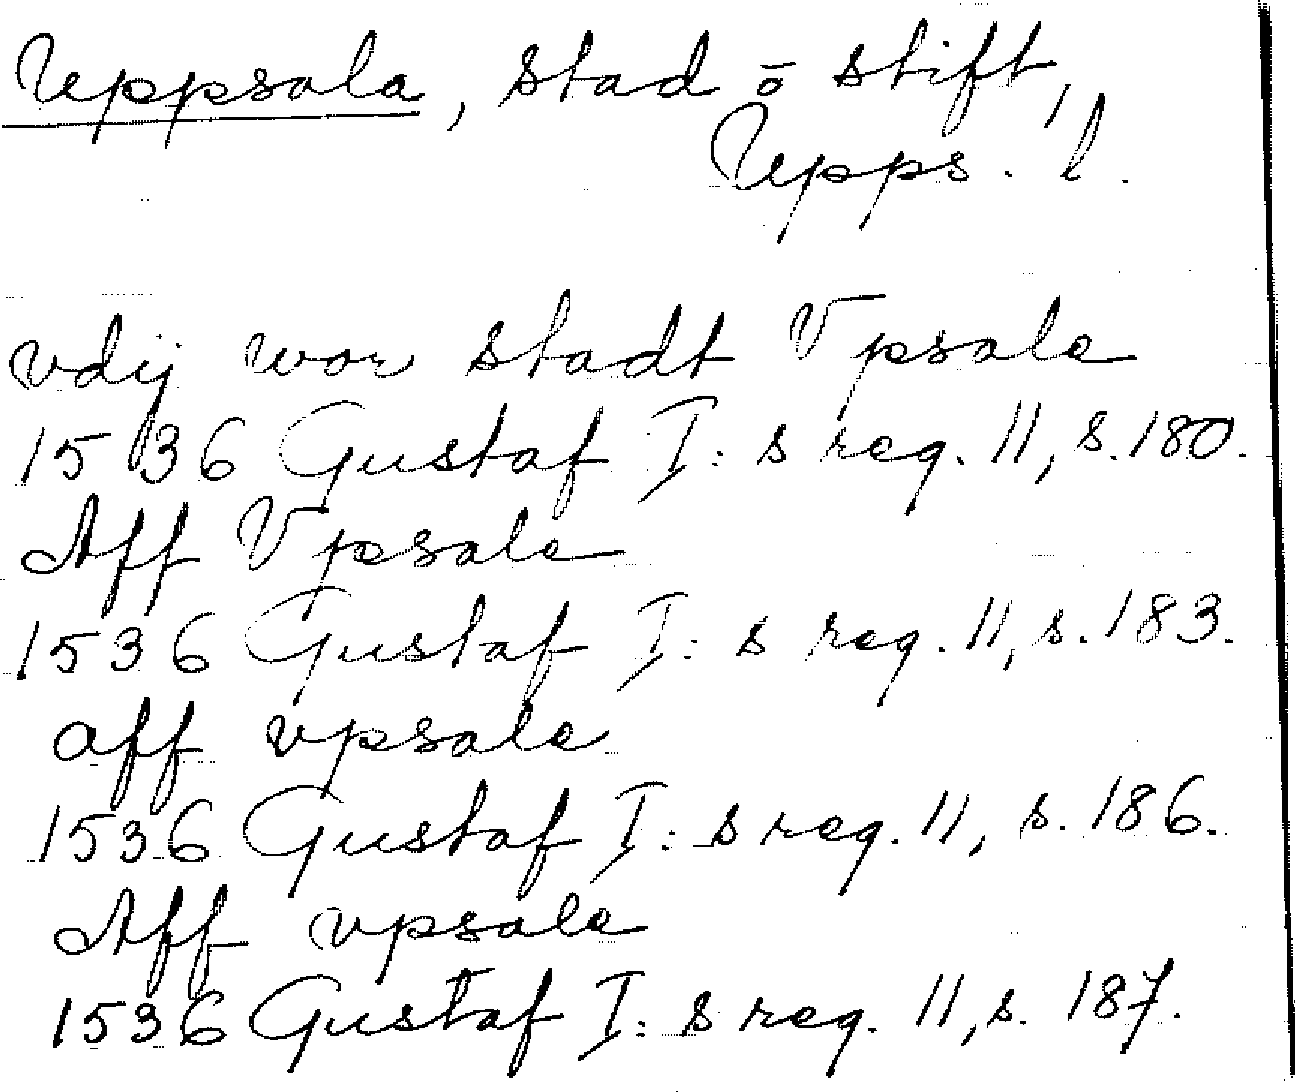 Uppsala, stad o stift,
Upps. l.
vdij wor stadt Vpsale
1536 Gustaf I: s reg. 11, s. 180.
Aff Vpsale
1536 Gustaf I: s reg. 11, s. 183.
aff vpsale
1536 Gustaf I: s reg. 11, s. 186.
Aff vpsale
1536 Gustaf I: s reg. 11, s. 187.